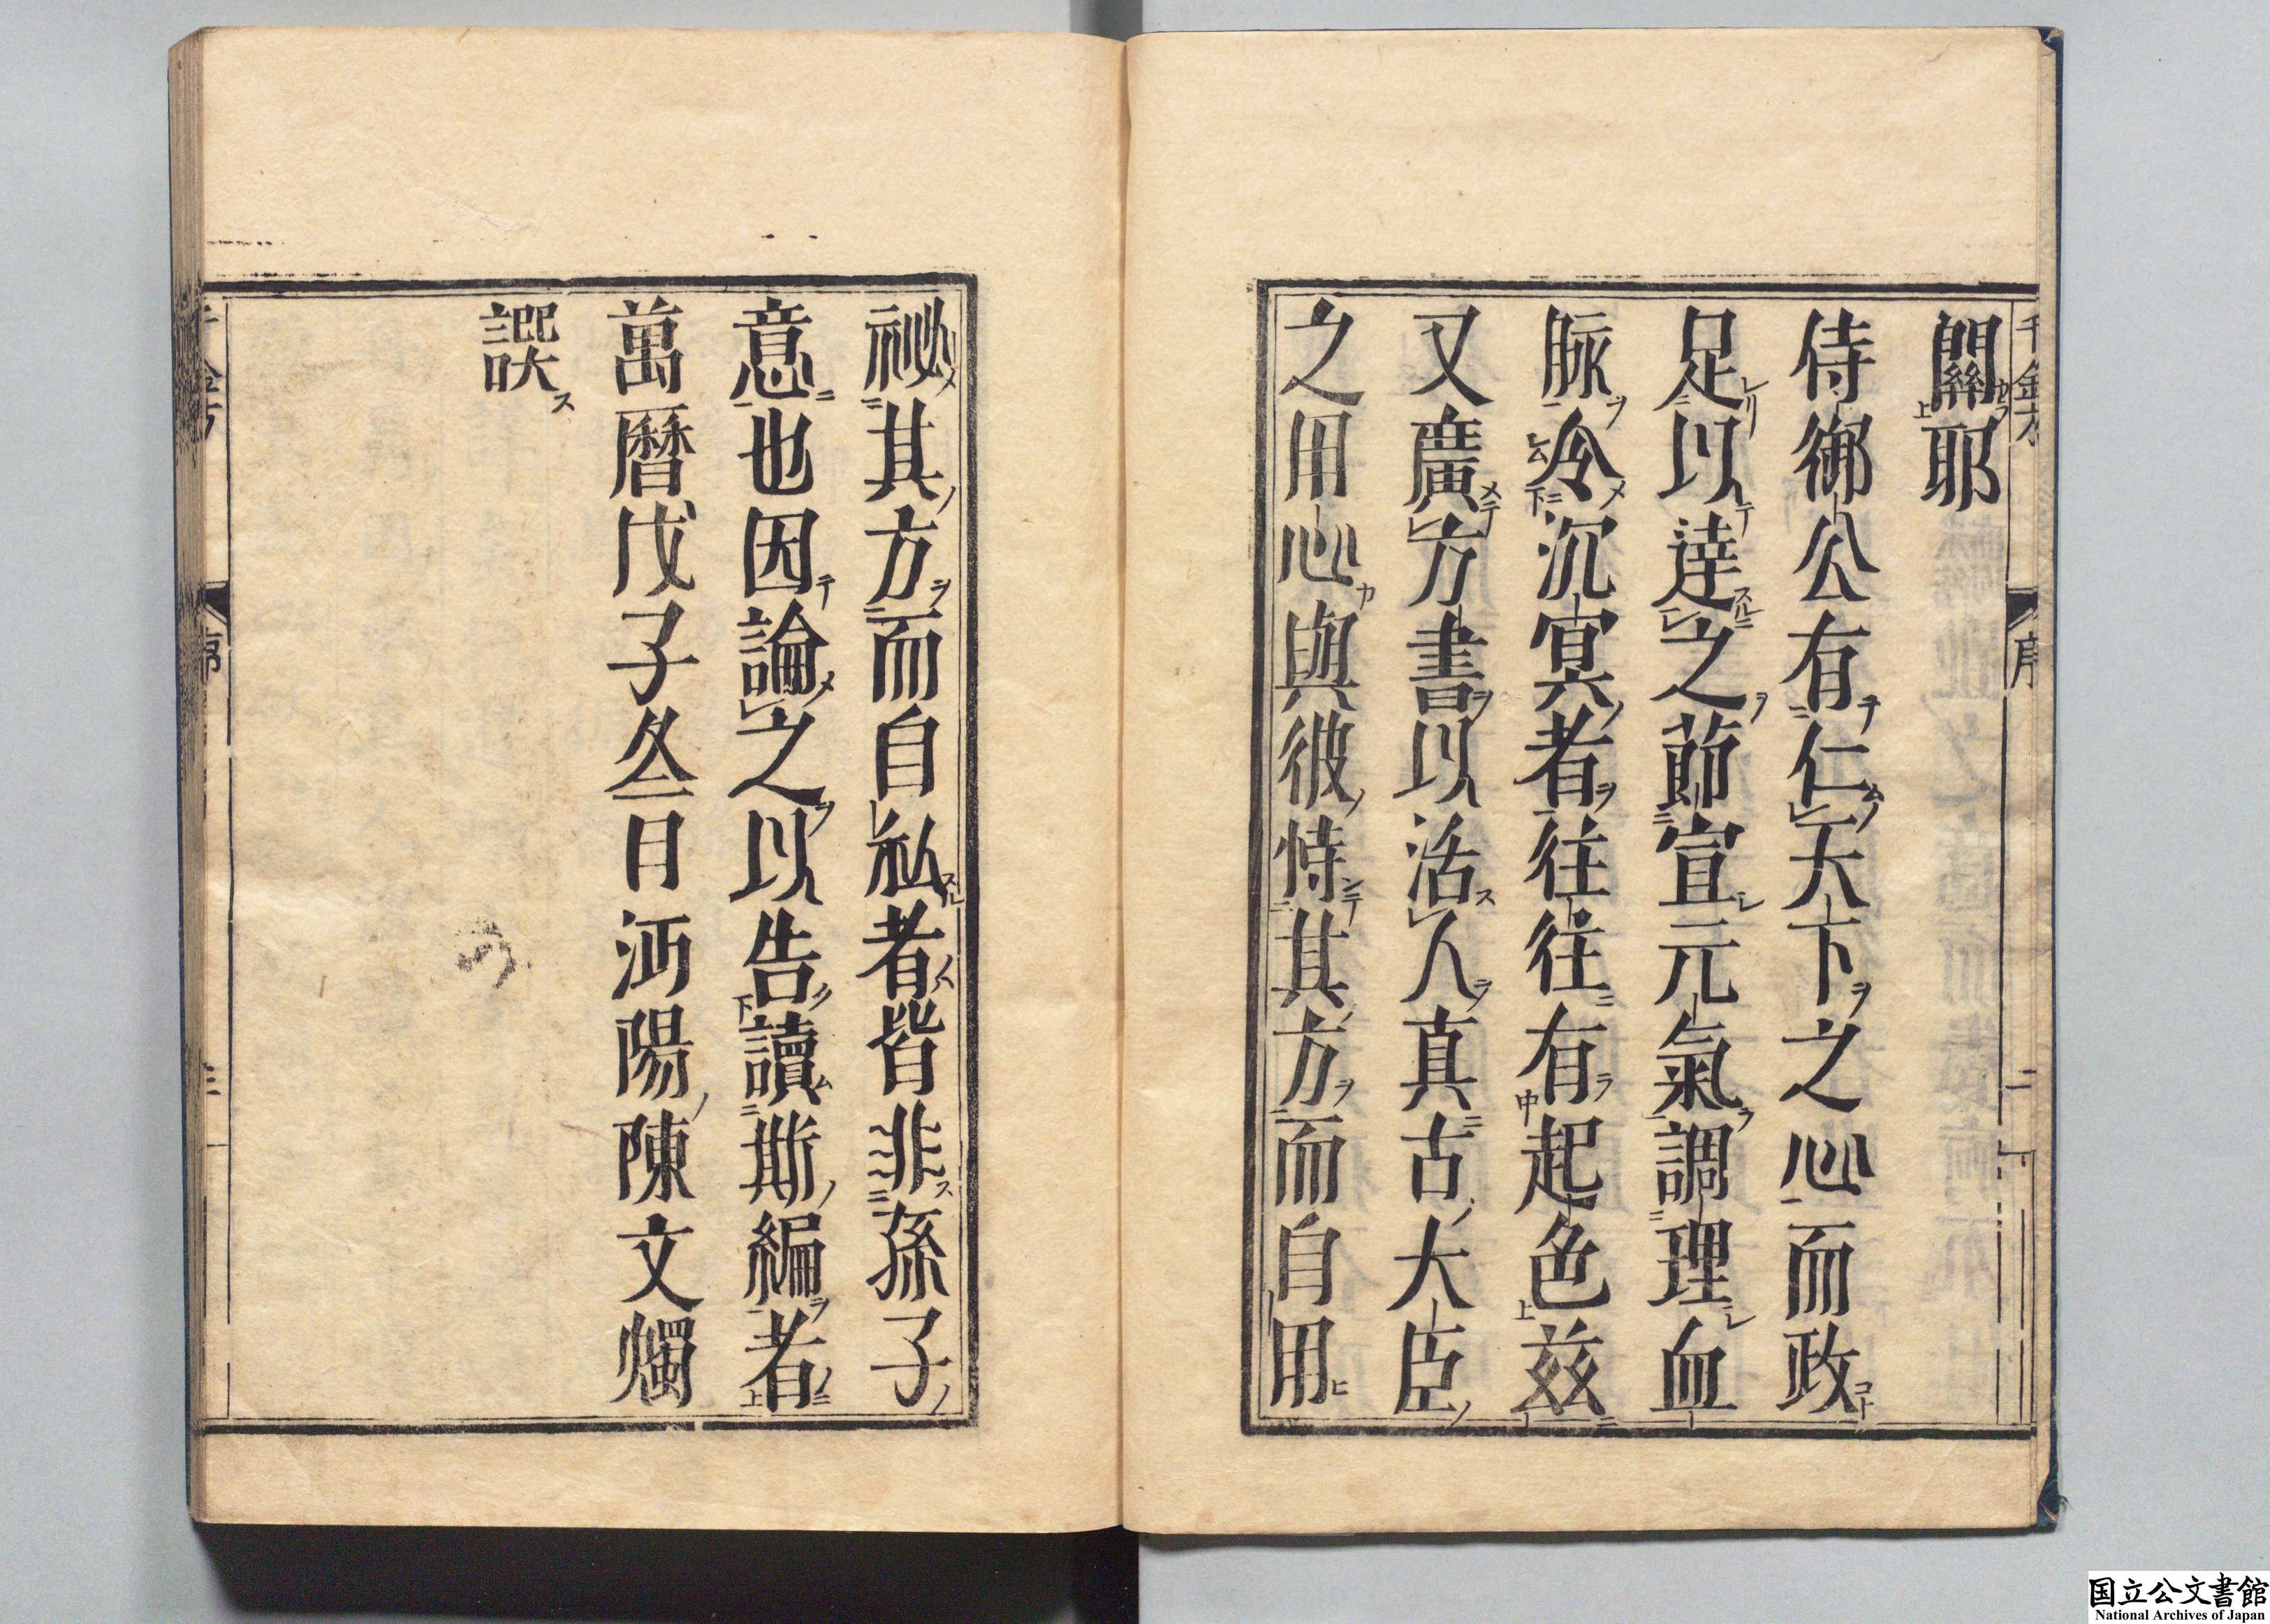 關耶
侍御公有仁天下之心而政
足以達之節宣元氣調理血
脉冷沉冥者往往有起色茲
又廣方書以活人真古大臣
之用心與彼恃其方而自用
秘其方而自私者皆非孫子
意也因論之以告讀斯編者
萬曆戊子冬日沔陽陳文燭
譔
千金方
序
二
序
三
国立公文書館
National Archives of Japan